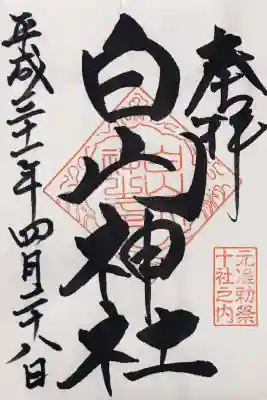 奉拝
元准勅祭
十社之内
白山神社
平成三十一年四月二十八日